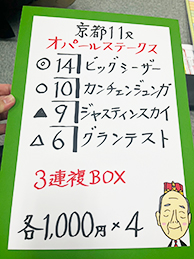 京都11R
オパールステークス
◎14 ビッグシーザー
○10 カンチェンジュンガ
▲9 ジャスティンスカイ
△6 グランテスト
3連複BOX
各1,000円×4